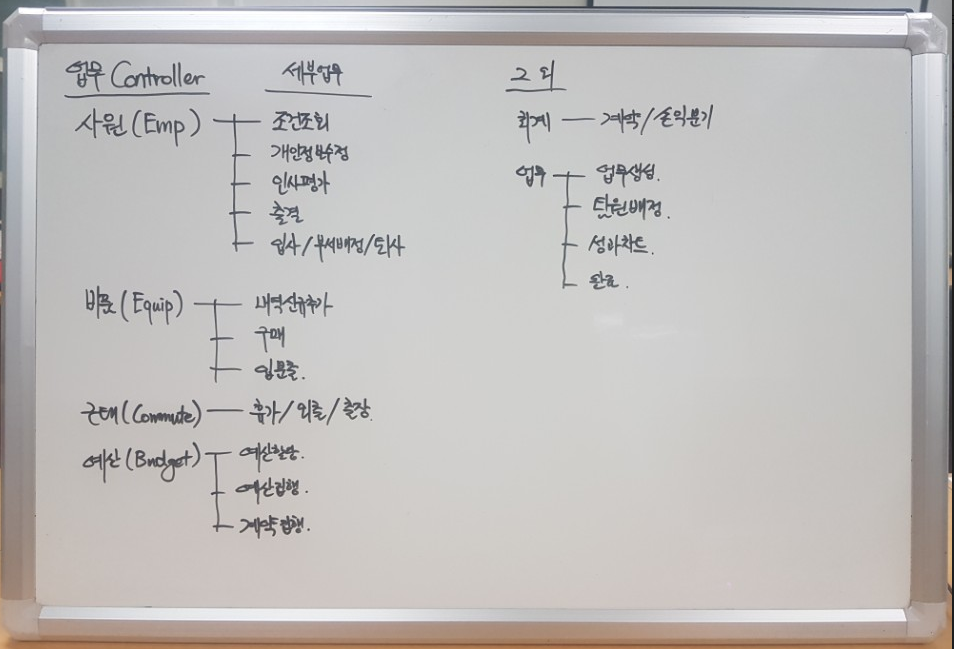 업무 Controller 세부업무
사원 (Emp) 조건조회
개인정보수정
인사평가
출결
입사/부서배정/퇴사
비품 (Equip) 내역신규추가
구매
근태 (Commute) 휴가/외출/출장.
예산 (Budget) 예산할당.
예산집행.
계약집행.
그 외
회계 계약/손익분기
업무 업무생성.
팀원배정.
성과차트.
완료.